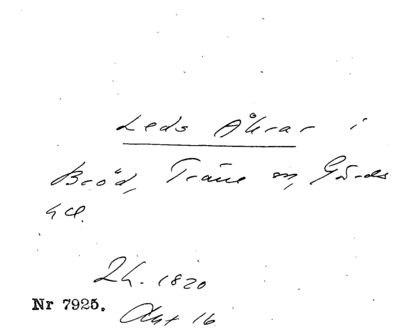 Leds Åkrar i
Bröd, Träne sn, Gärds
hd.
Lh. 1820
Nr 7925. Akt 16